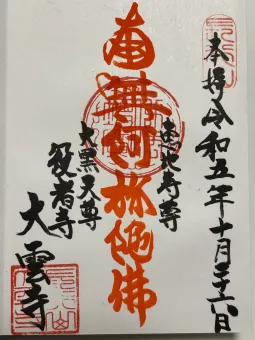 奉拝 令和五年十月二十六日
南無阿弥陀佛
大黒天尊
役者寺
大雲寺